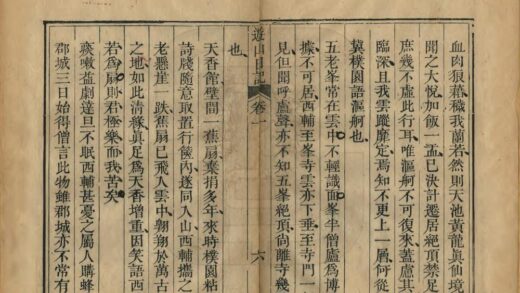 血肉狼藉穢我蘭若然則天池黃龍眞仙境
聞之大悅加飯一盂已決計遷居絕頂禁足
庶幾不虛此行耳唯漚舸不可復來蓋慮其
臨深且我雲蹤靡定焉知不更上一層何從
冀樸園語漚舸也
五老峯常在雲中不輕識面峯半僧廬爲博
據不可居西輔至峯寺雲亦下垂至寺門一
見但聞呼盧聲亦不知五峯絕頂尚離寺幾
遊山日記 卷一 六
也
天香館壁間一蕉扇棄捐多年來時樸園粘
詩牋隨意取置行篋內遂同入山西輔攜之
老懸崖一跌蕉扇已飛入雲中翱翔於萬古
之地如此清緣眞足爲天香增重因笑語西
若爲扇則君極樂而我苦矣
痰嗽益劇達旦不眠西輔甚憂之屬人購蜂
郡城三日始得僧言此物雖郡城亦不常有